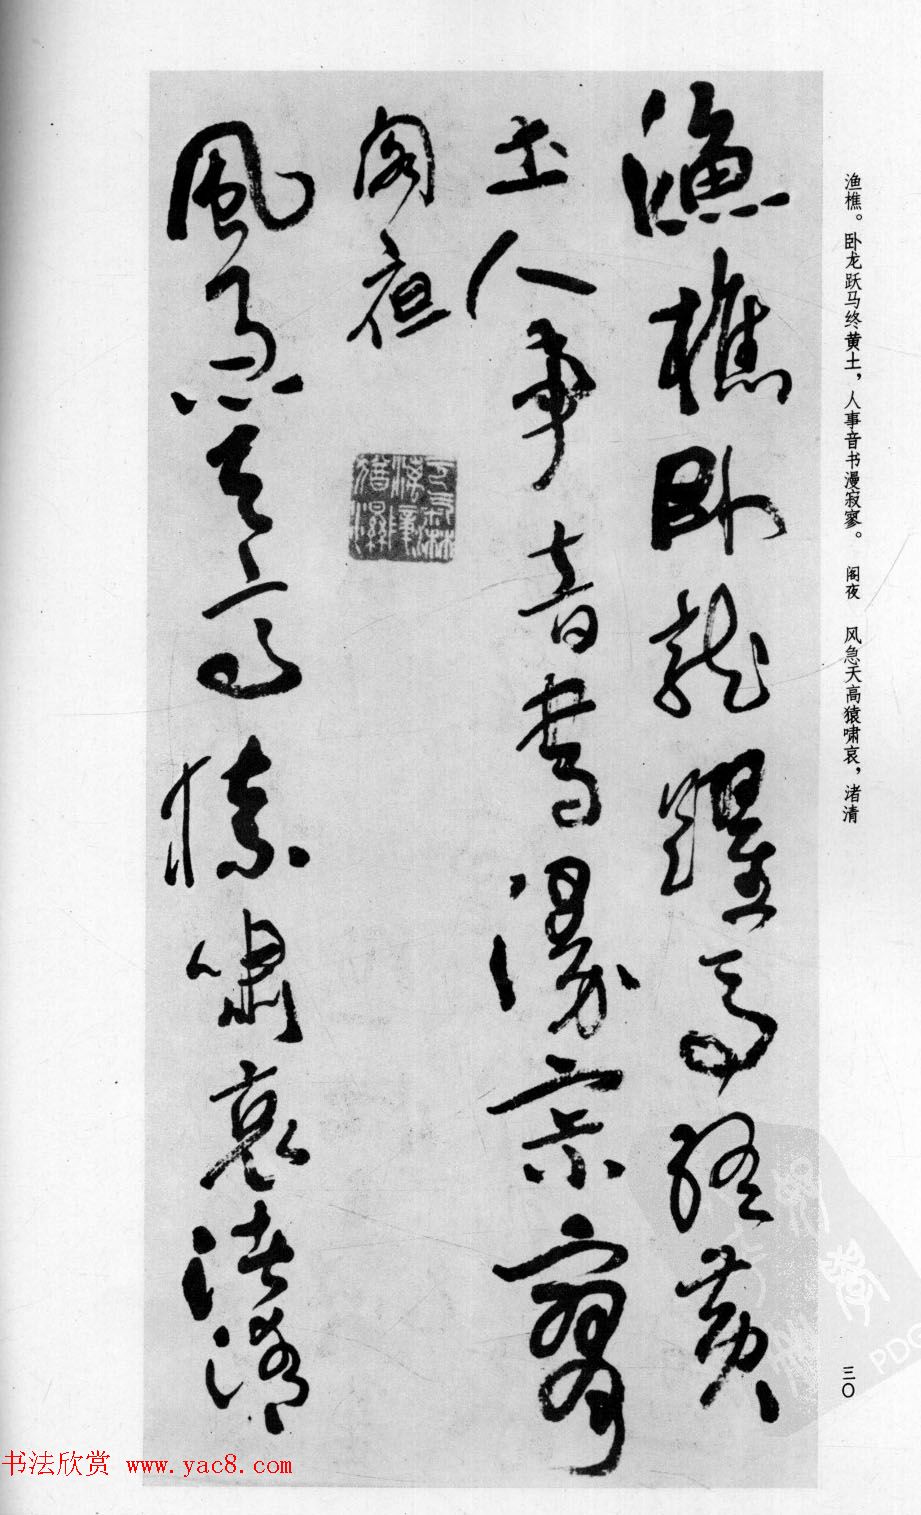 渔樵。卧龙跃马终黄土，人事音书漫寂寥。 阁夜 风急天高猿啸哀，渚清
漁樵卧龍躍馬終黄
土人事音書漫寂寥
閣夜
風急天高猿嘯哀渚清
三〇
书法欣赏 www.yac8.com